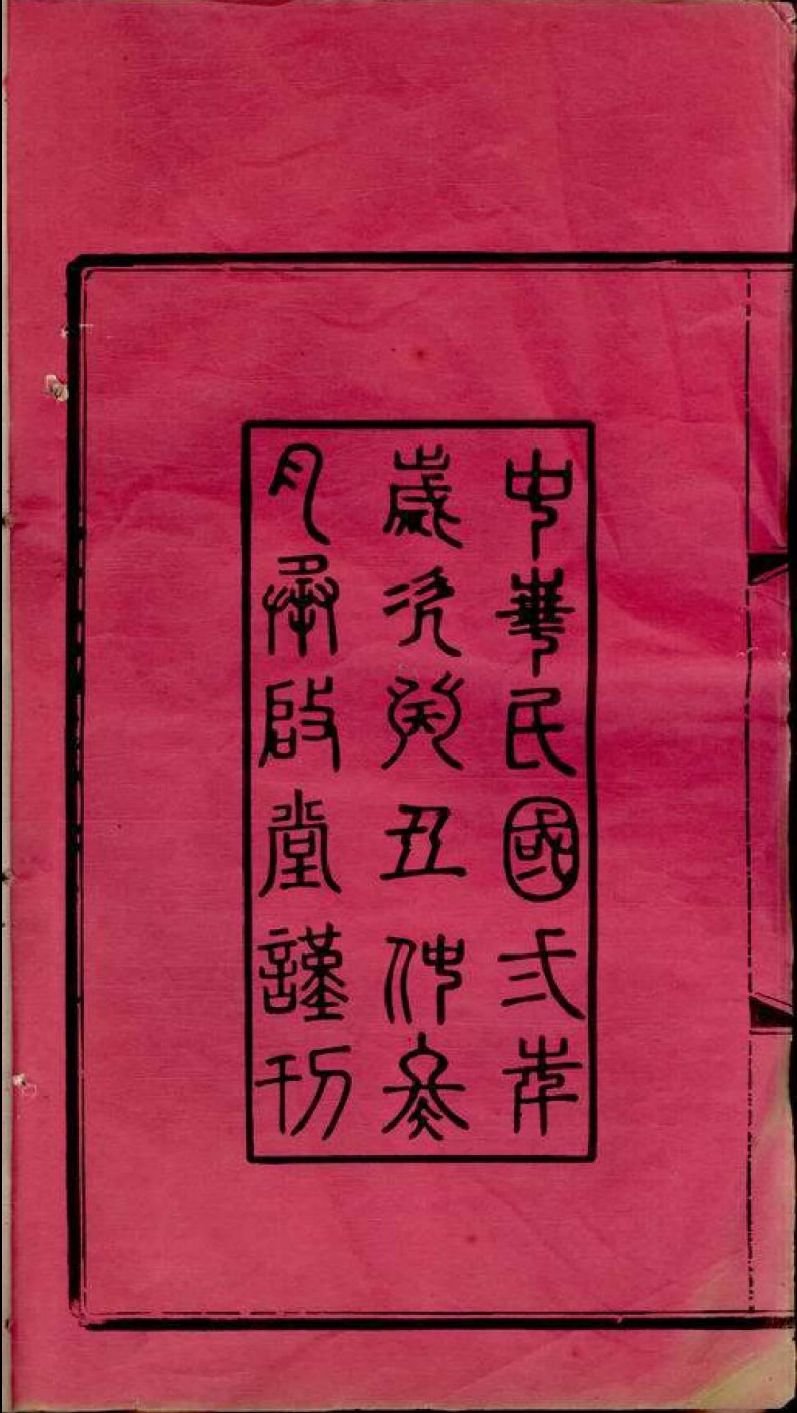 中華民國弍年
歲次癸丑仲冬
月承啟堂謹刊